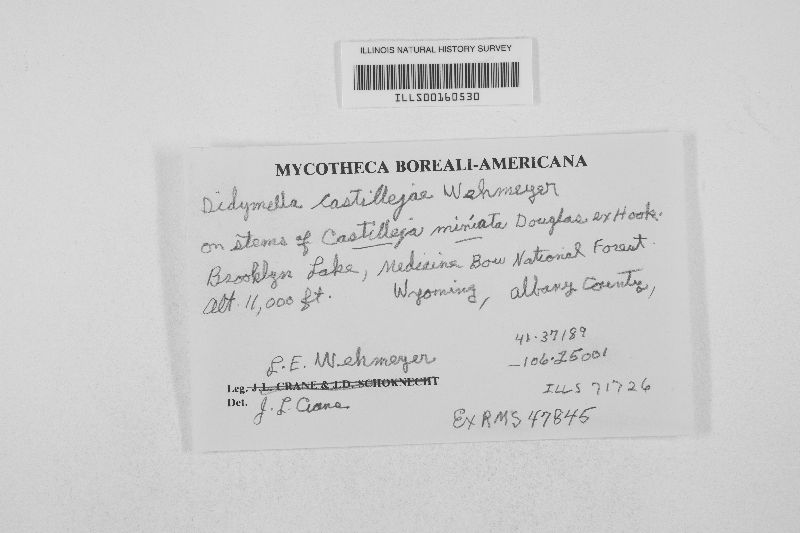 ILLINOIS NATURAL HISTORY SURVEY
ILLS00160530
MYCOTHECA BOREALI-AMERICANA
Didymella Castillejae Wehmeyer
on stems of Castilleja miniata Douglas ex Hook.
Brooklyn Lake, Medicine Bow National Forest.
alt. 11,000 ft. Wyoming, albany County,
41.37189
-106.25001
L. E. Wehmeyer
Leg. J.L. CRANE & J.D. SCHOKNECHT
ILLS 71726
Det. J. L. Crane
Ex RMS 47845